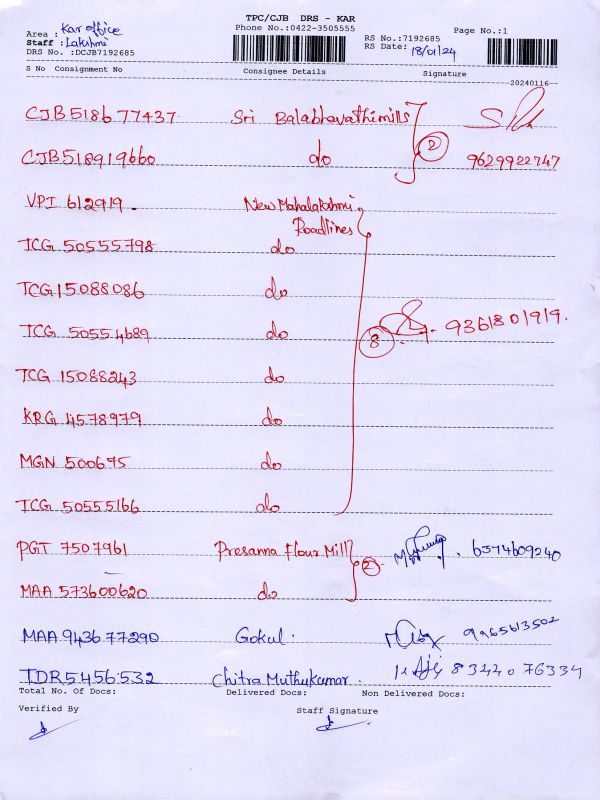 TPC/CJB DRS - KAR
Phone No.:0422-3505555
Page No.:1
Area : Kar office
RS No.:7192685
Staff : Lakshmi
RS Date: 18/01/24
DRS No. :DCJB7192685
S No Consignment No Consignee Details Signature
20240116
CJB518677437 Sri Balabhavathimills
CJB518919660 do 2 9629922747
VPI 612919. New Mahalakshmi
Roadlines
TCG 50555798 do
TCG15088086 do
TCG 50554689 do 8 9361801919.
TCG 15088243 do
KRG 4578979 do
MGN 500695 do
TCG 50555166 do
PGT 7507961 Presanna Flour Mill 2 6374609240
MAA 573600620 do
MAA 943677290 Gokul. 9965613502
TDR5456532 Chitra Muthukumar. 8344076334
Total No. Of Docs: Delivered Docs: Non Delivered Docs:
Verified By Staff Signature